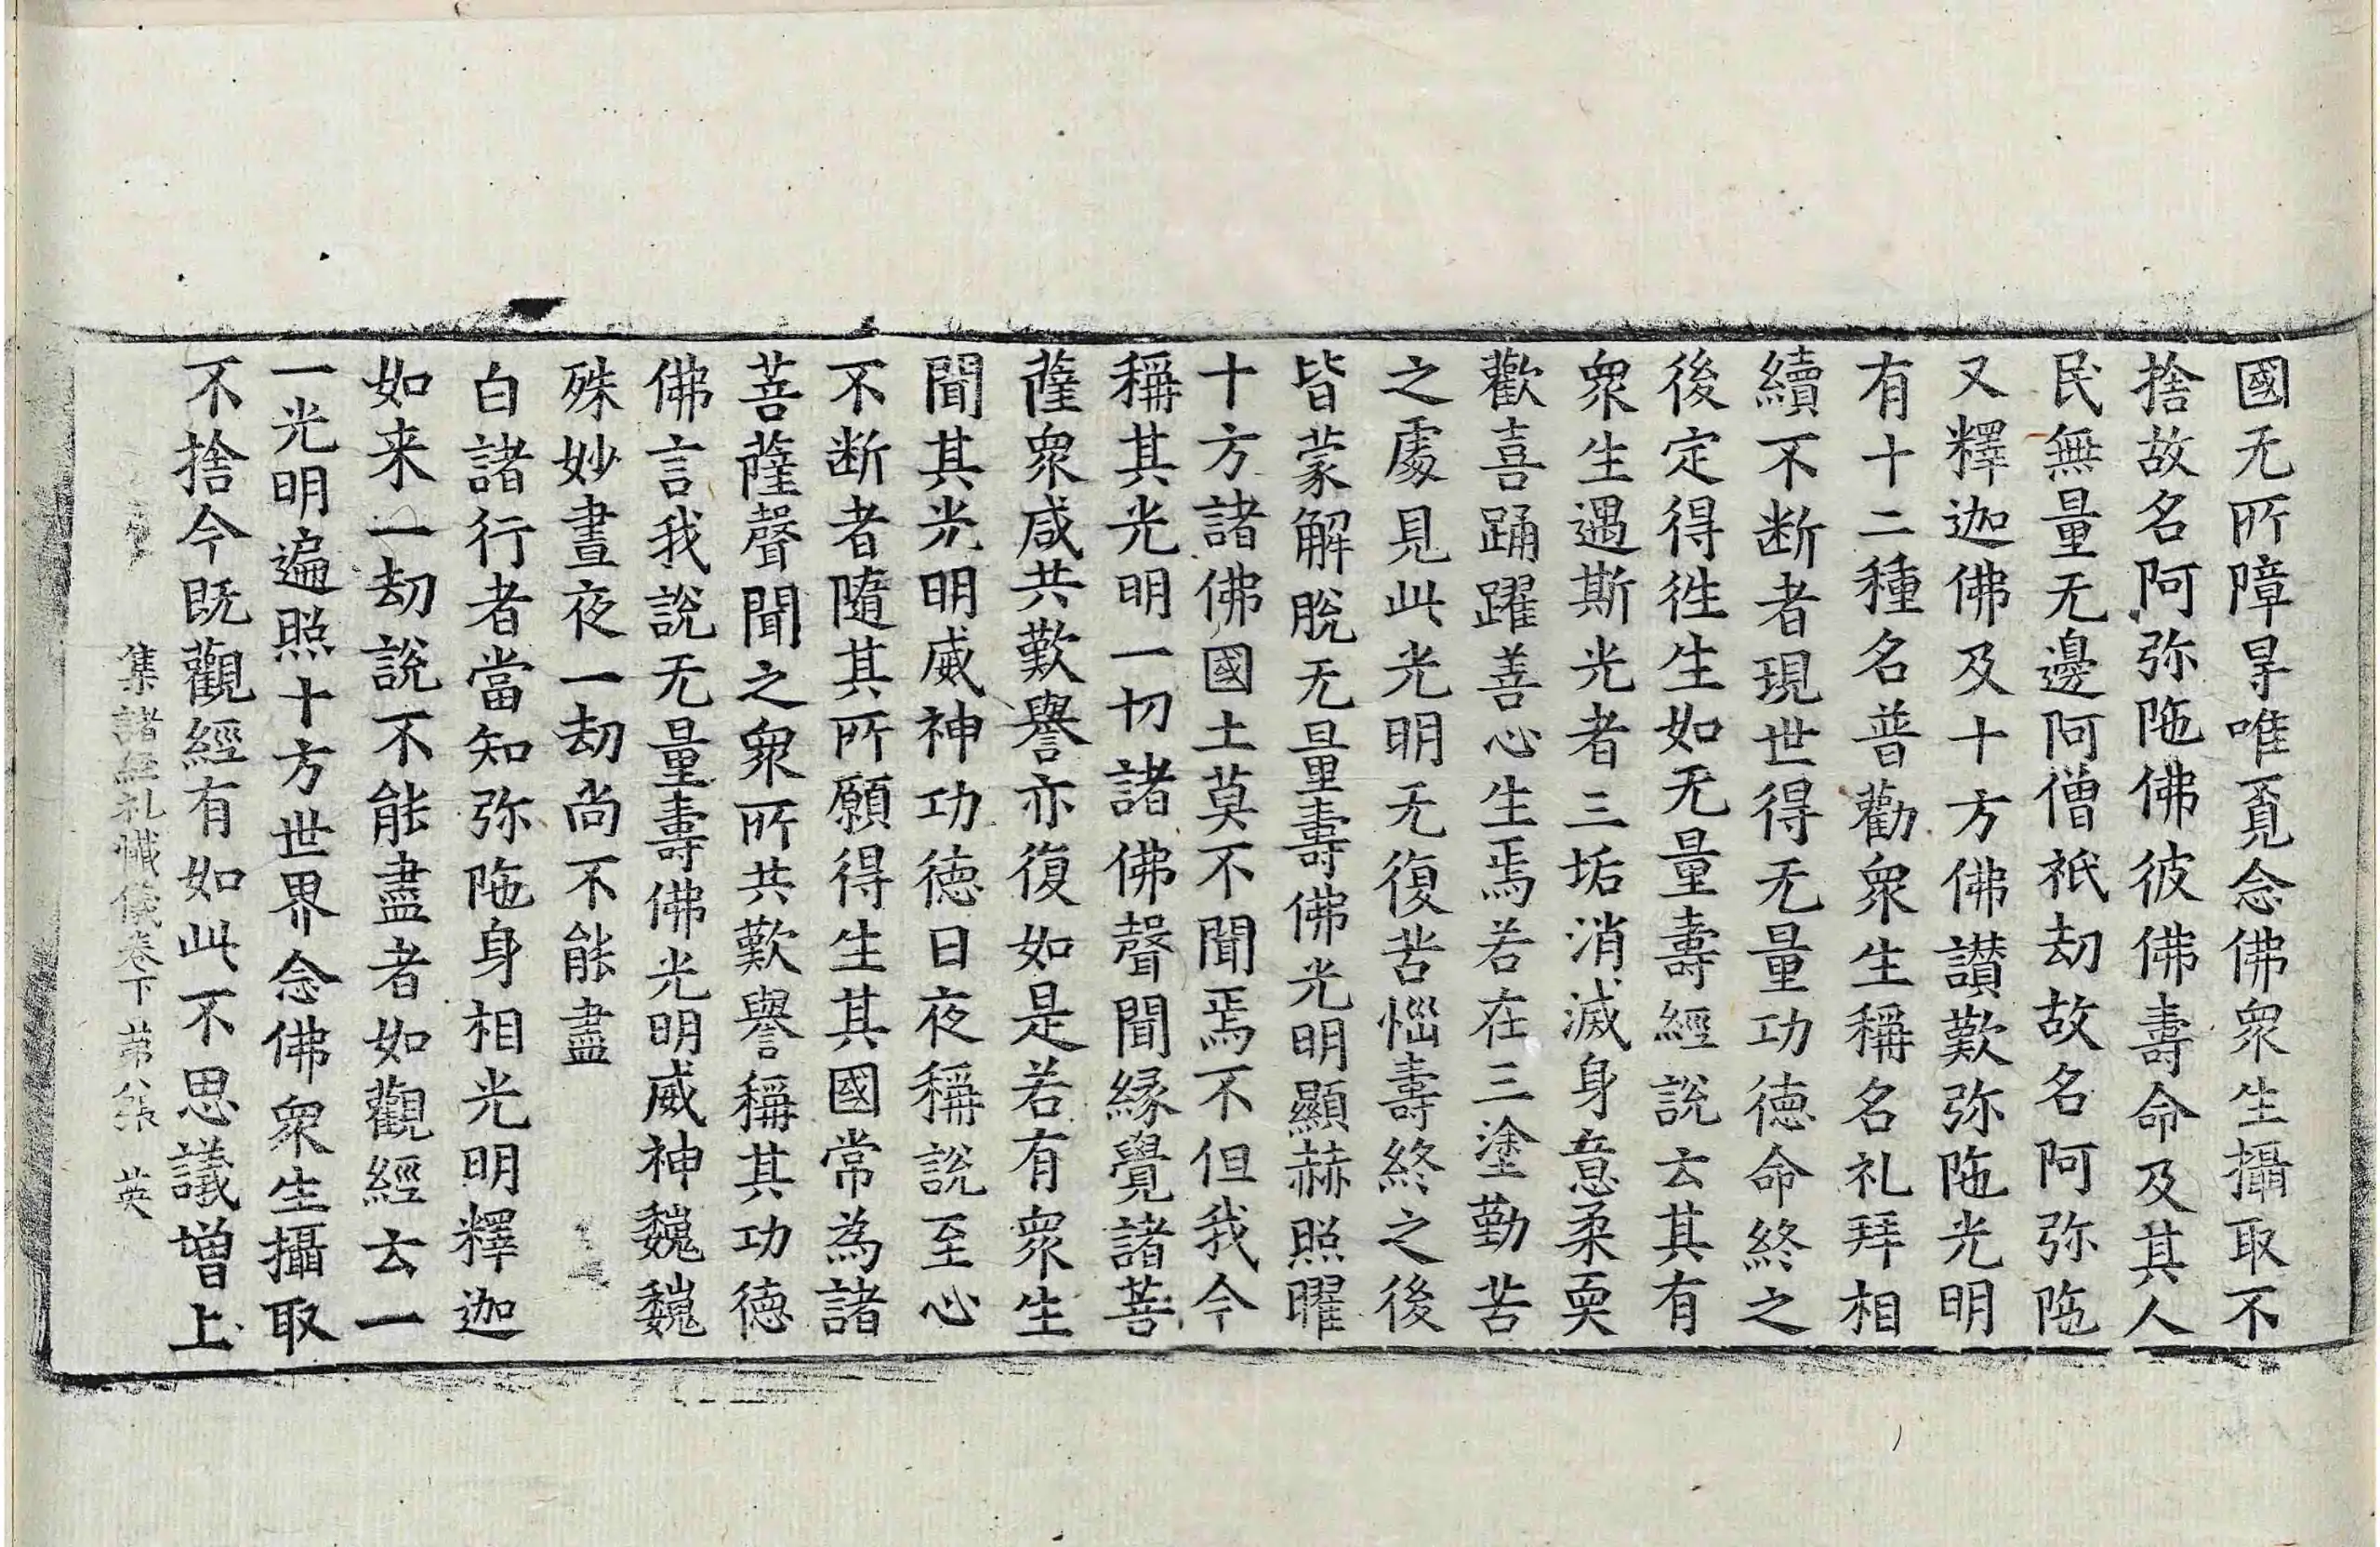 國无所障㝵唯覓念佛衆生攝取不
捨故名阿弥陁佛彼佛壽命及其人
民無量无邊阿僧祇劫故名阿弥陁
又釋迦佛及十方佛讃歎弥陁光明
有十二種名普勸衆生稱名礼拜相
續不断者現世得无量功德命終之
後定得徃生如无量壽經說云其有
衆生遇斯光者三垢消滅身意柔耎
歡喜踊躍善心生焉若在三塗勤苦
之處見此光明无復苦惱壽終之後
皆蒙解脫无量壽佛光明顯赫照曜
十方諸佛國土莫不聞焉不但我今
稱其光明一切諸佛聲聞緣覺諸菩
薩衆咸共歎譽亦復如是若有衆生
聞其光明威神功德日夜稱說至心
不断者隨其所願得生其國常為諸
菩薩聲聞之衆所共歎譽稱其功德
佛言我說无量壽佛光明威神巍巍
殊妙晝夜一劫尚不能盡
白諸行者當知弥陁身相光明釋迦
如来一劫說不能盡者如觀經云一
一光明遍照十方世界念佛衆生攝取
不捨今既觀經有如此不思議增上
集諸經礼懺儀卷下 第八张 英